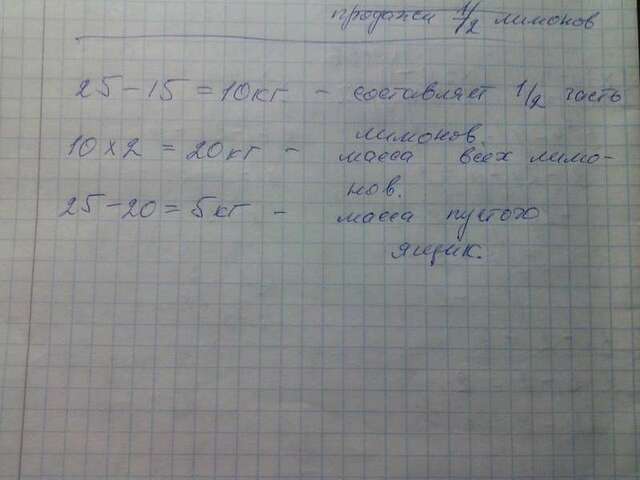 продажи 1/2 лимонов
25 - 15 = 10кг - составляет 1/2 часть
лимонов
10 x 2 = 20кг - масса всех лимо-
нов.
25 - 20 = 5кг - масса пустого
ящик.